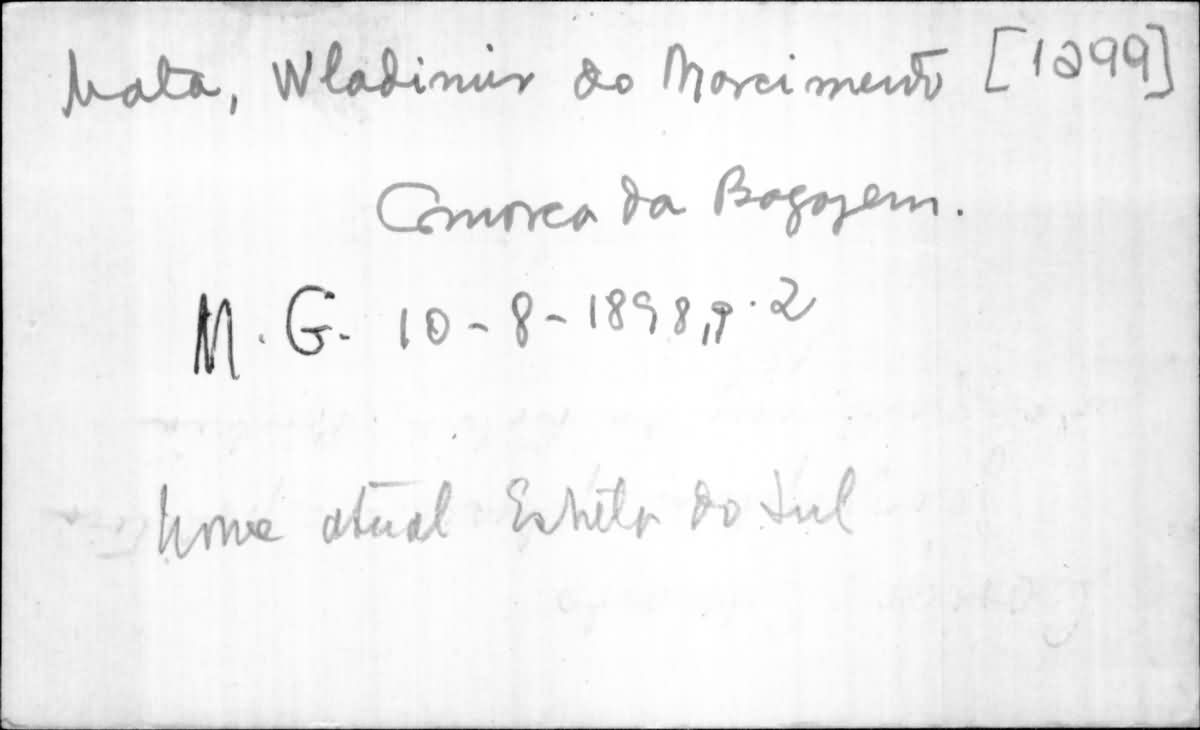 Mata, Wladimir do Nascimento [1899]
Comarca da Bagagem.
M. G. 10-8-1898, p. 2
Nome atual Estrela do Sul